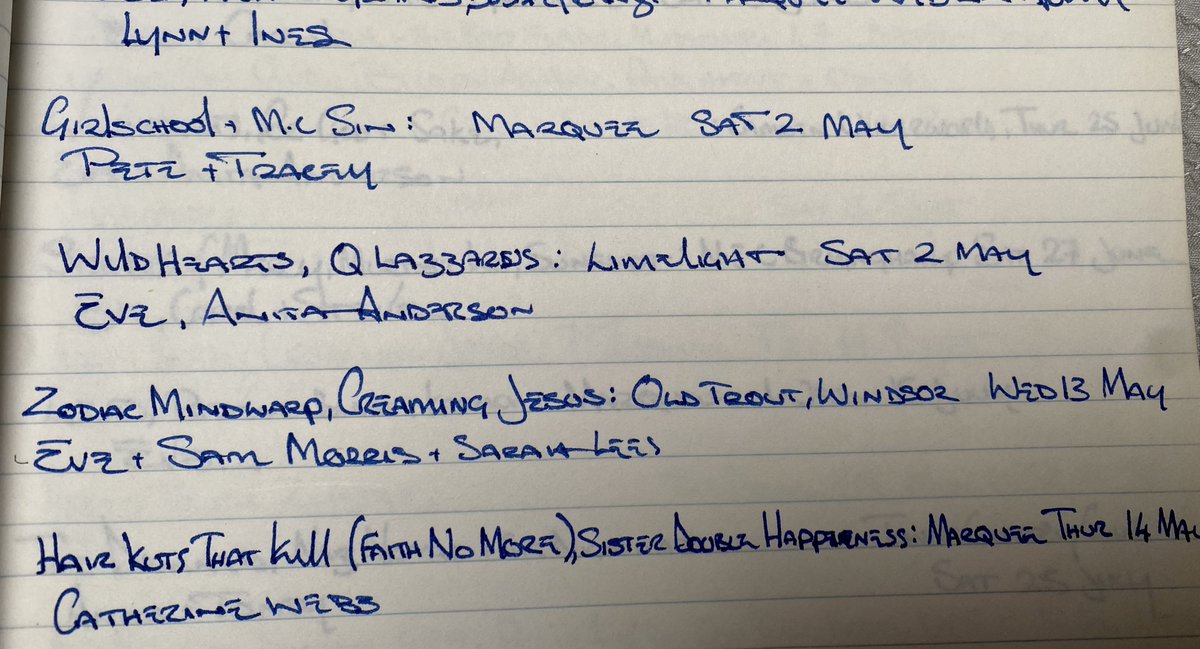 Lynn + Ines
Girlschool + M.C Sin: Marquee Sat 2 May
Pete + Tracey
Wildhearts, Q Lazzarus: Limelight Sat 2 May
Eve, Anita Anderson
Zodiac Mindwarp, Creaming Jesus: Old Trout, Windsor Wed 13 May
Eve + Sam Morris + Sarah Lees
Hair Kuts That Kill (Faith No More), Sister Double Happerness: Marquee Thur 14 Ma
Catherine Webb